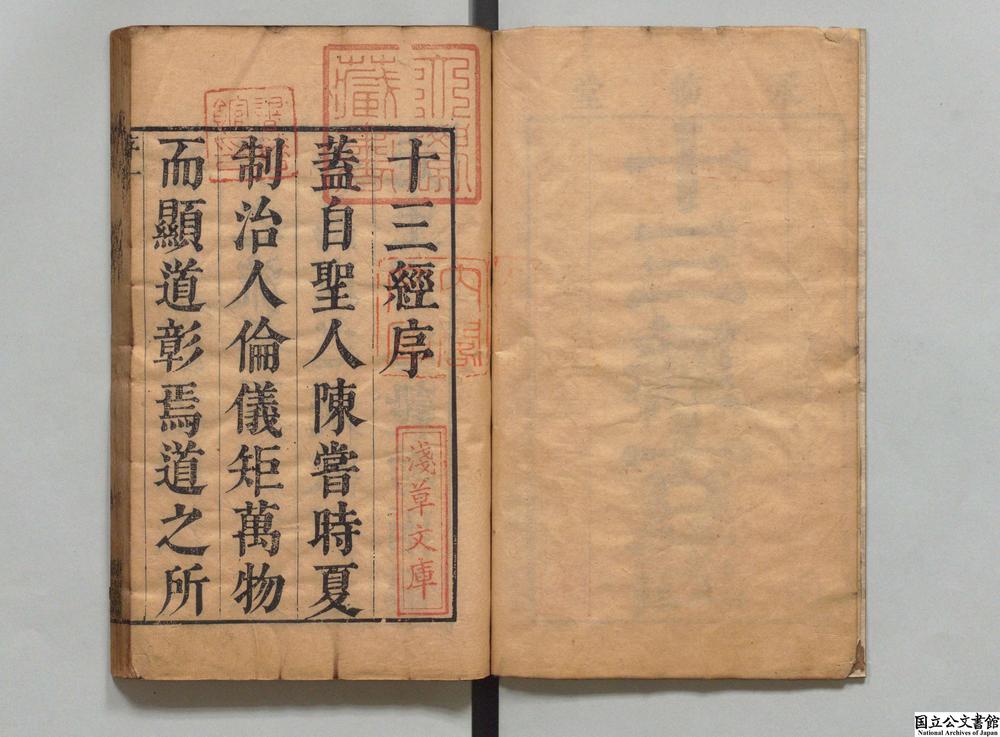 十三經序
蓋自聖人陳嘗時夏
制治人倫儀矩萬物
而顯道彰焉道之所
序一
淺草文庫
內閣
藏書
国立公文書館
National Archives of Japan